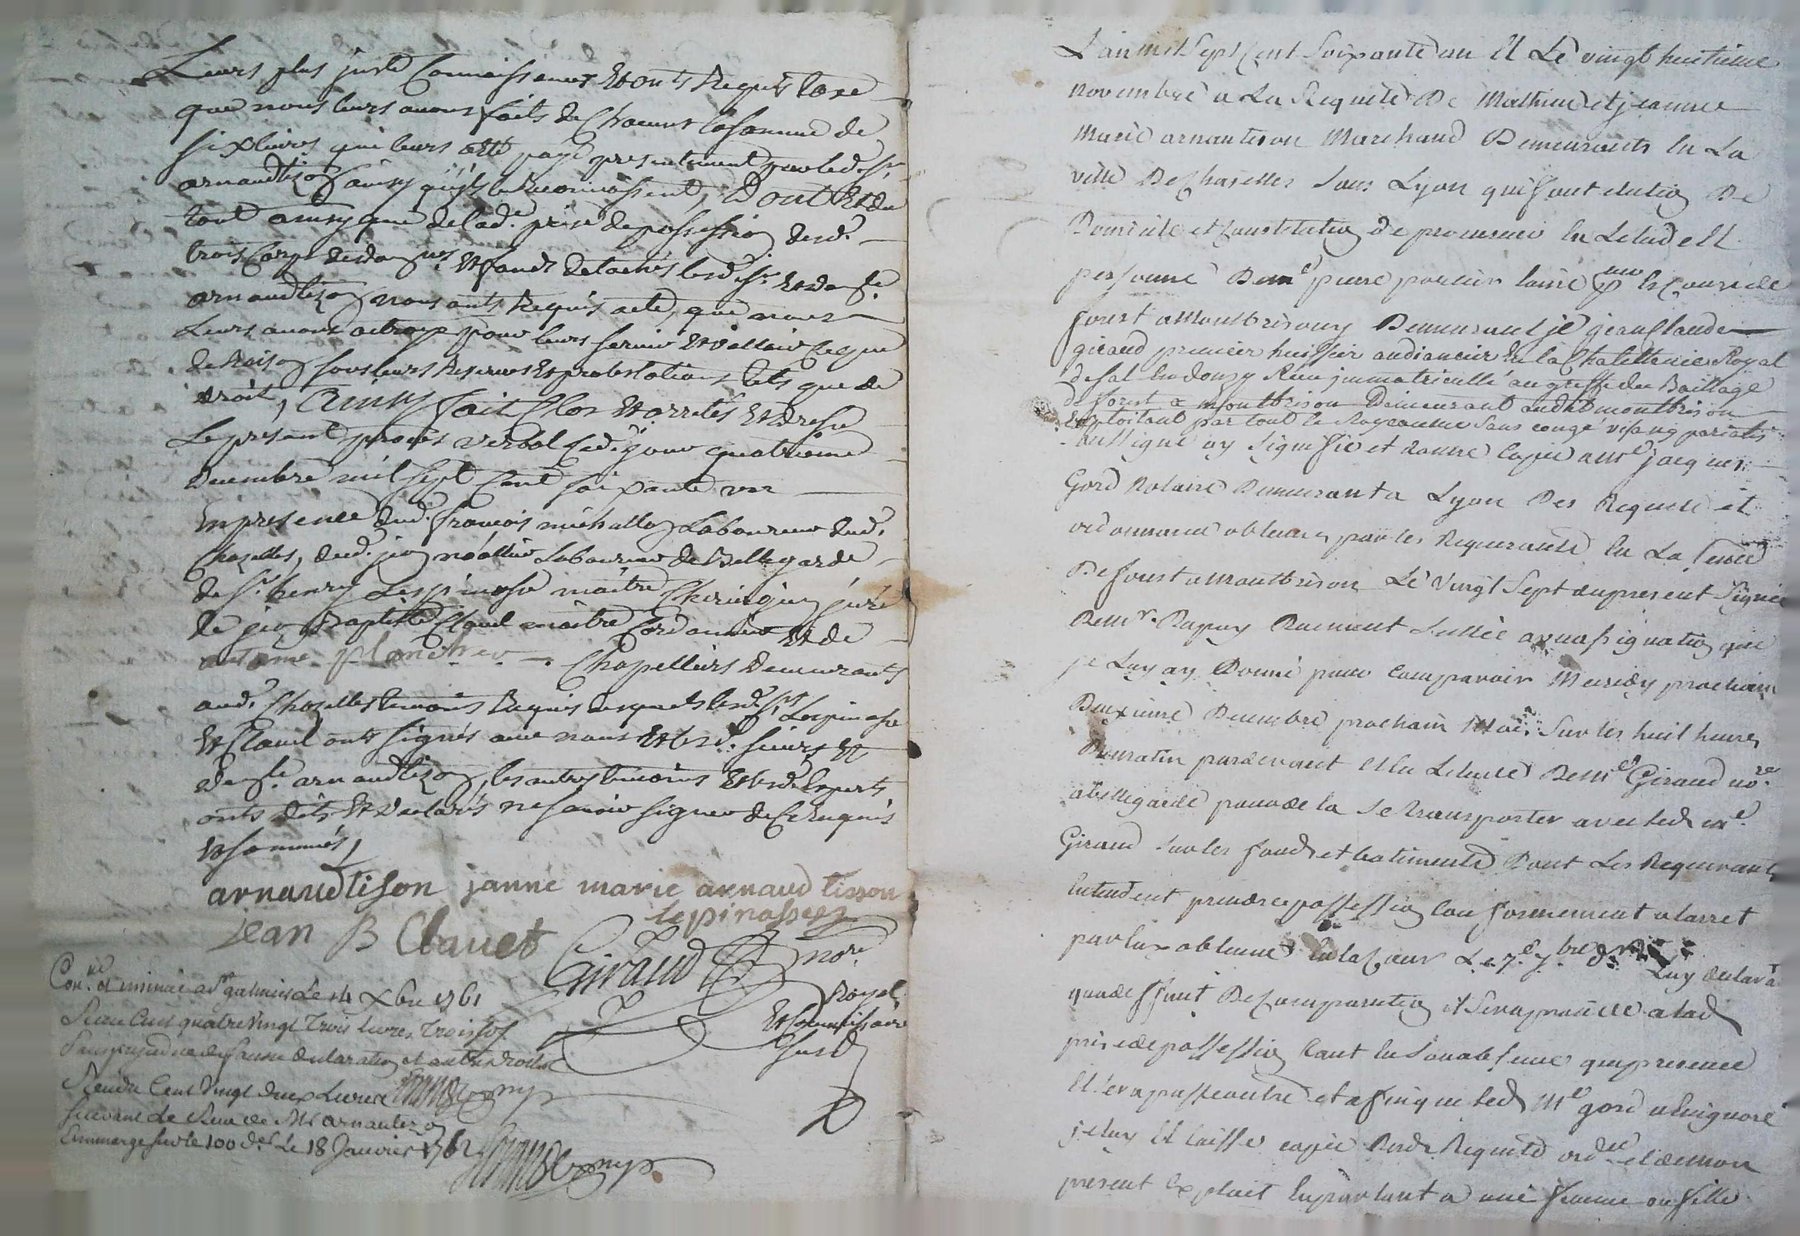 Leurs plus juste Connaissances Et onts Requis taxe
que nous leurs avons faits de Chacuns la somme de
six livres qui leurs a été payé presentement par led. Sr.
arnaudtizon ainsy qu'ils le Reconnoissent, Dont Et du
tout ainsy que de lad. prise de possession desd.
trois Corps de domaines Et fonds detachés lesd. Srs. Et dlle.
arnaudtizon nous onts Requis acte, que nous
Leurs avons octroyé pour leurs servir Et valloir Ce que
de Raison sous leurs Reserves Et protestations tels que de
droit, Ainsy fait Clos Et arretés Et dressé
Le présent procès verbal Ced. jour quatrième
Decembre mil sept Cent soixante un
En presence dud. françois michallon Laboureur dud.
Chazelles, dud. jean noallier Laboureur de Bellegarde
de Sr. henry Lespinasse maitre Chirurgien juré
de jean Baptiste Clauet maître Cordonnier Et de
antoine planchet Chapelliers demeurants
aud. Chazelles temoins Requis desquels lesd. Srs. Lespinasse
Et Clauet onts signés avec nous Et lesd. sieurs Et
dlle. arnaudtizon, les autres temoins Et lesd. Experts
onts dits Et declarés ne savoir signer de Ce Enquis
Et sommés,
arnaudtison janne marie arnaud tisson
lepinasse
Jean B Clauet Giraud nore.
Royal
Et Commissaire
Con.lé et insinué a St galmier Le 14 Xbre 1761
Reçu Cent quatre vingt trois livres treize sols
Sans prejudice de fausse declaration et autres droits
Rendu Cent vingt deux Livres
suivant Le Reçu de Mr arnautizon
Emmargé sur le 100 de. Le 18 Janvier 1762
L'an mil sept Cent soixante un Et Le vingt huitieme
novembre a La Requete De Mathieu et jeanne
Marie arnautison Marchand Demeurants En La
ville De Chazelles sous Lyon qui font election De
Domicile et Constitution de procureur En Letude Et
personne De me pierre portier lainé pr En la Cour de
forest a Montbrison y Demeurant je jean Claude
giraud premier huissier audiancier En la Chatellenie Royal
de sal En donzy Reçu immatriculle au greffe du Baillage
de forest a montbrison Demeurant audit montbrison
Exploitant par tout le Royaume sans congé visa ny pariatis
soussigné ay signiffié et donné Copie a me jacques
Gord Notaire Demeurant a Lyon Des Requete et
ordonnance obtenue par les Requerants En La senec
De forest a Montbrison Le vingt sept du present signée
De mr. Duguey Duement scellée avec assignation que
je Luy ay Donné pour Comparoir Mercredy prochain
Deuxieme Decembre prochain sur les huit heures
Du matin pardevant Et En Letude De Me Giraud nore.
a bellegarde pour de la se transporter avec led me.
Giraud sur les fonds et batiments Dont Les Requerants
Entendent prendre possession Conformement a larret
par Eux obtenu En la Cour Le 7e 7bre dr. Luy declarant
qua deffaut De Comparution il sera procedé a lad
prise de possession tant En son absence que presence
Et sera passé outre et afin que led Me gord n'En ignore
je luy Et laissé copie Desd Requete ordce et de mon
present Exploit En parlant a une femme ou fille